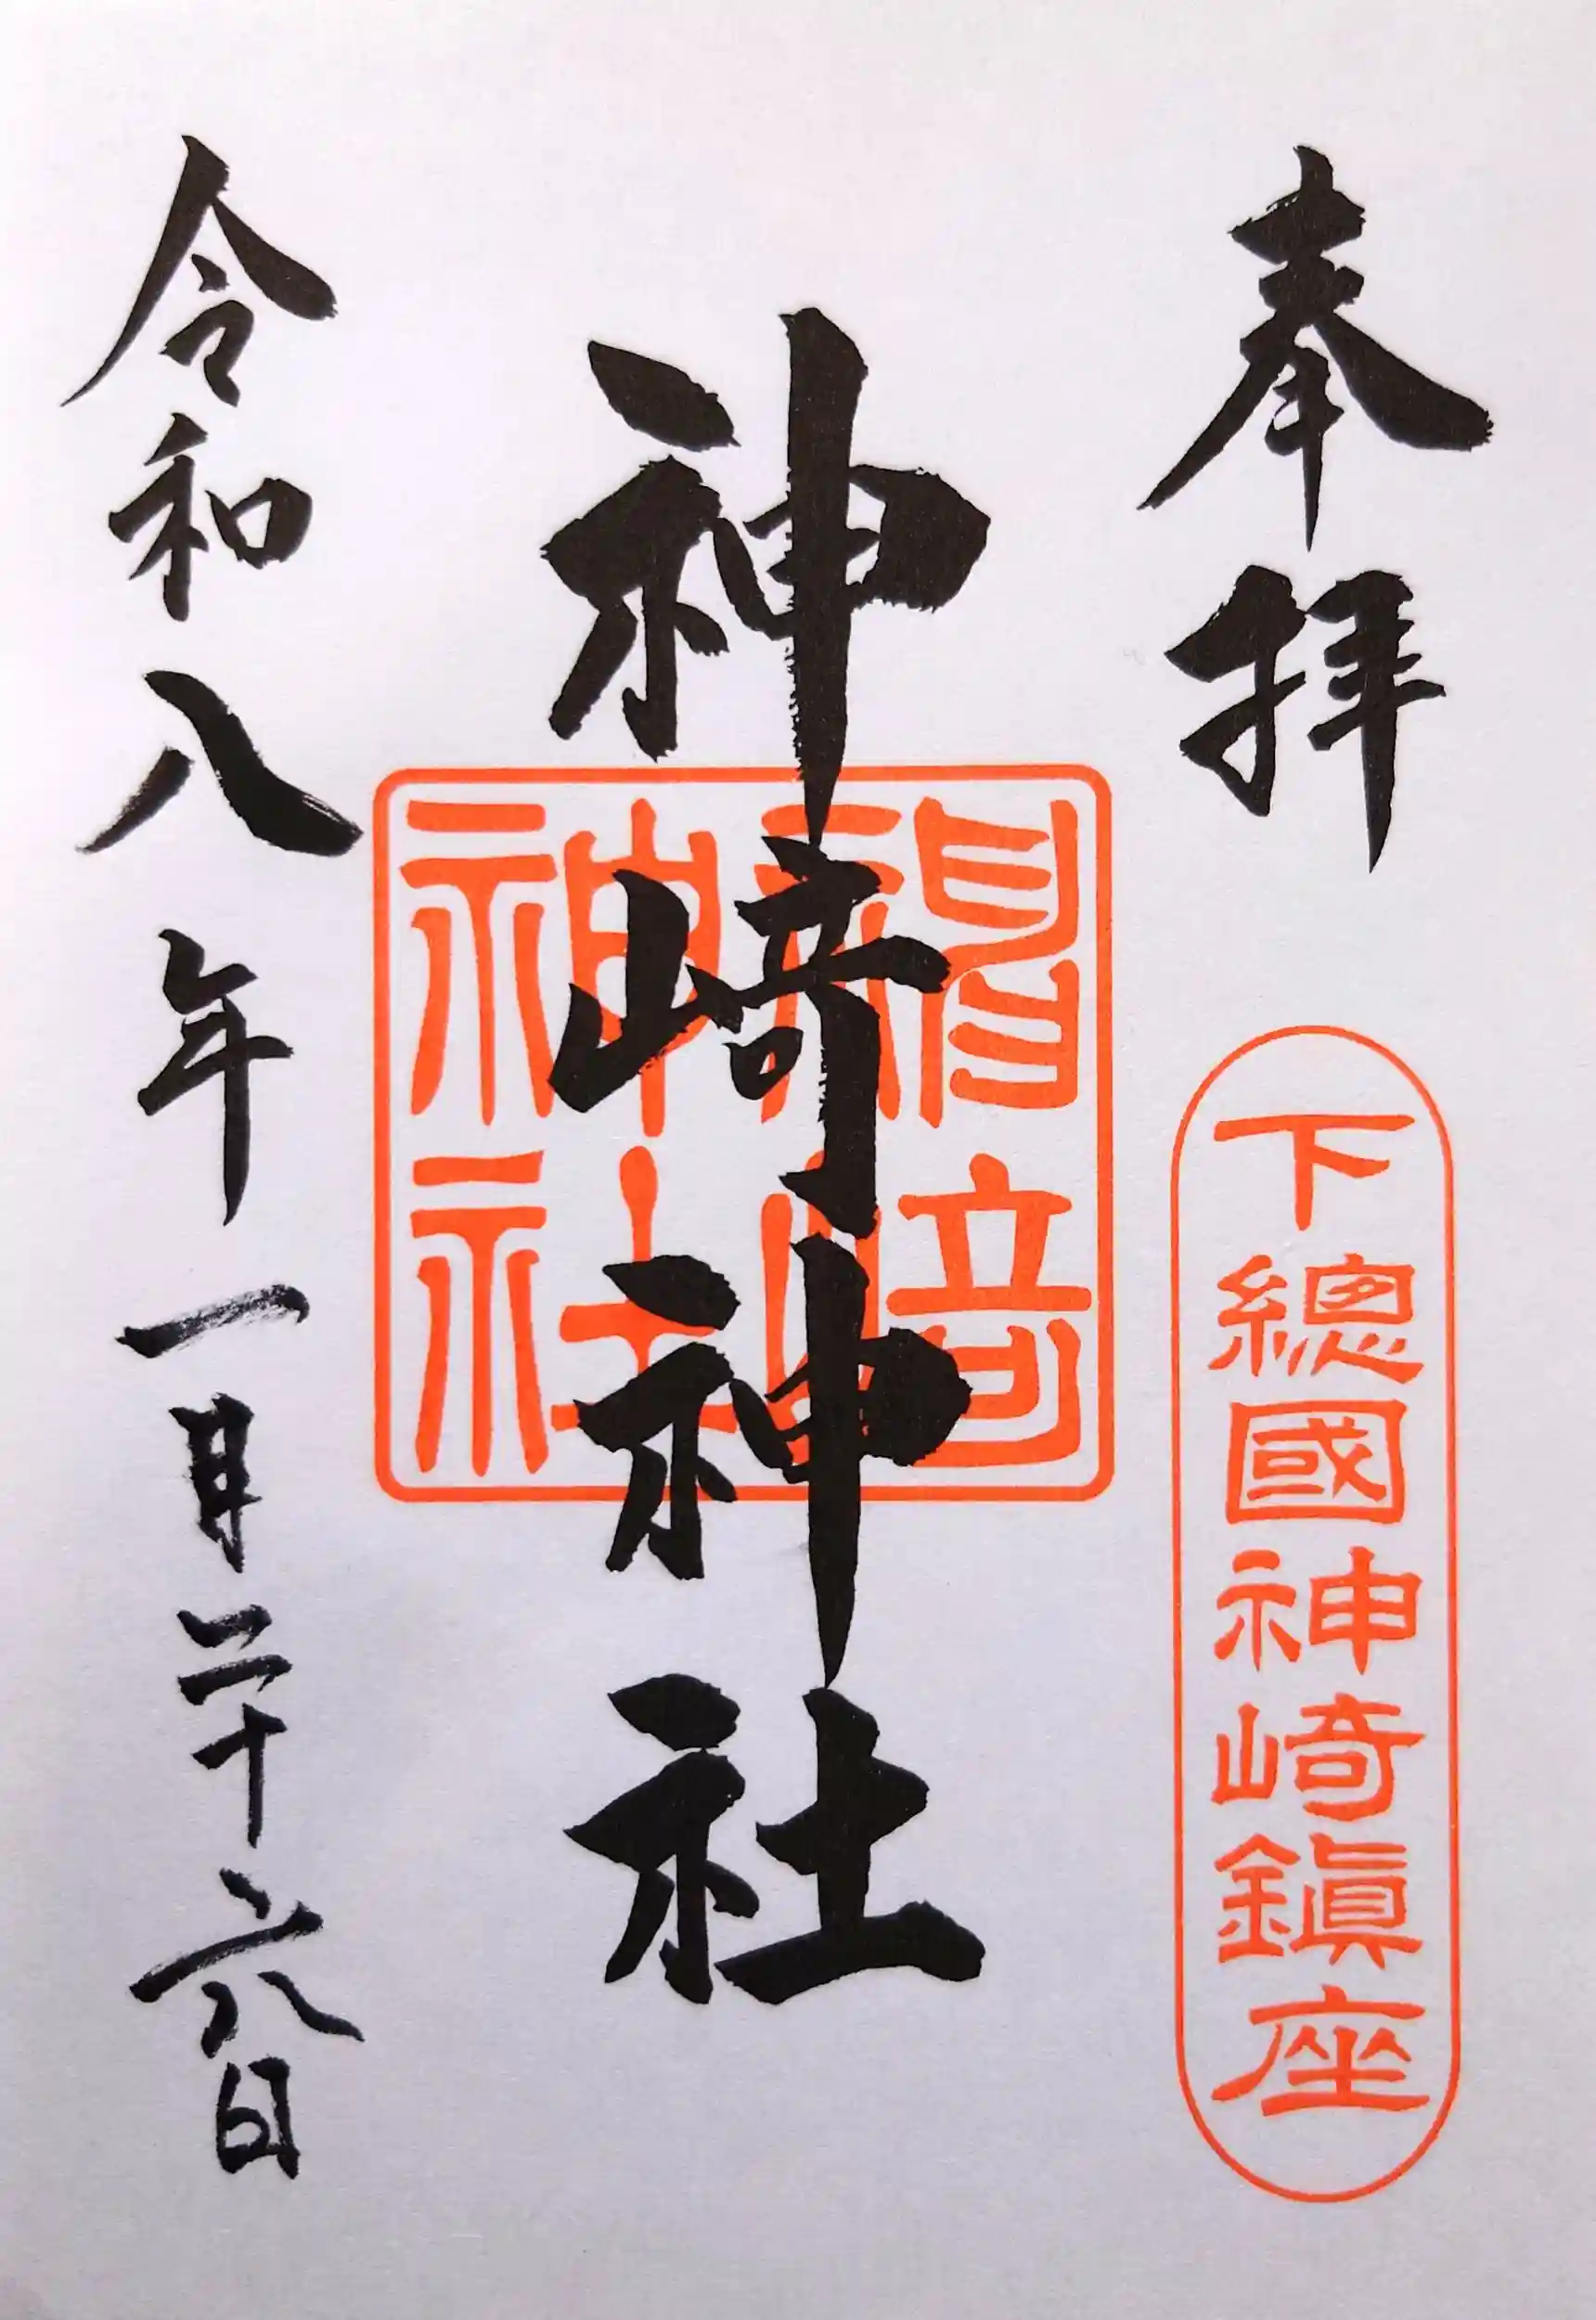 奉拝
下總國神崎鎮座
神﨑神社
﨑
神社
令和八年一月二十六日